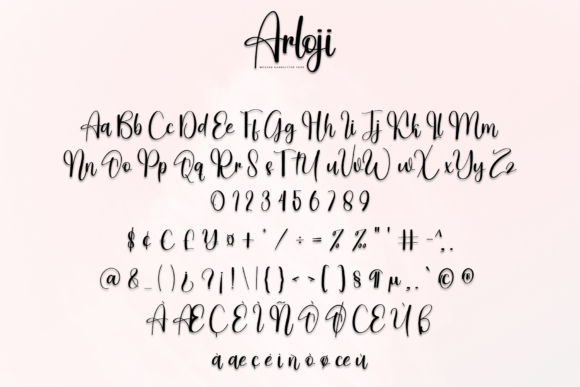 Arloji
Aa Bb Cc Dd Ee Ff Gg Hh Ii Jj Kk Ll Mm
Nn Oo Pp Qq Rr S s T t U u V v W w X x Y y Z z
0 1 2 3 4 5 6 7 8 9
$ ¢ € £ ¥ ¤ + ' / ÷ = % ‰ " ' # - ^ , .
@ & _ ( ) ¿ ? ¡ ! \ | { } < - > [ ] § ¶ µ , . ` © ®
À Æ Ç È Ì Ñ Ò Ø Œ Ù ß
à æ ç é ì ñ ò ø œ ù